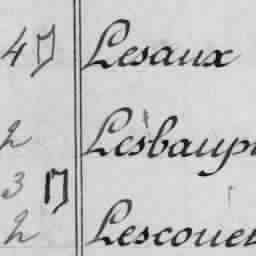 4 Lesaux
2 Lesbaup
3
2 Lescoue